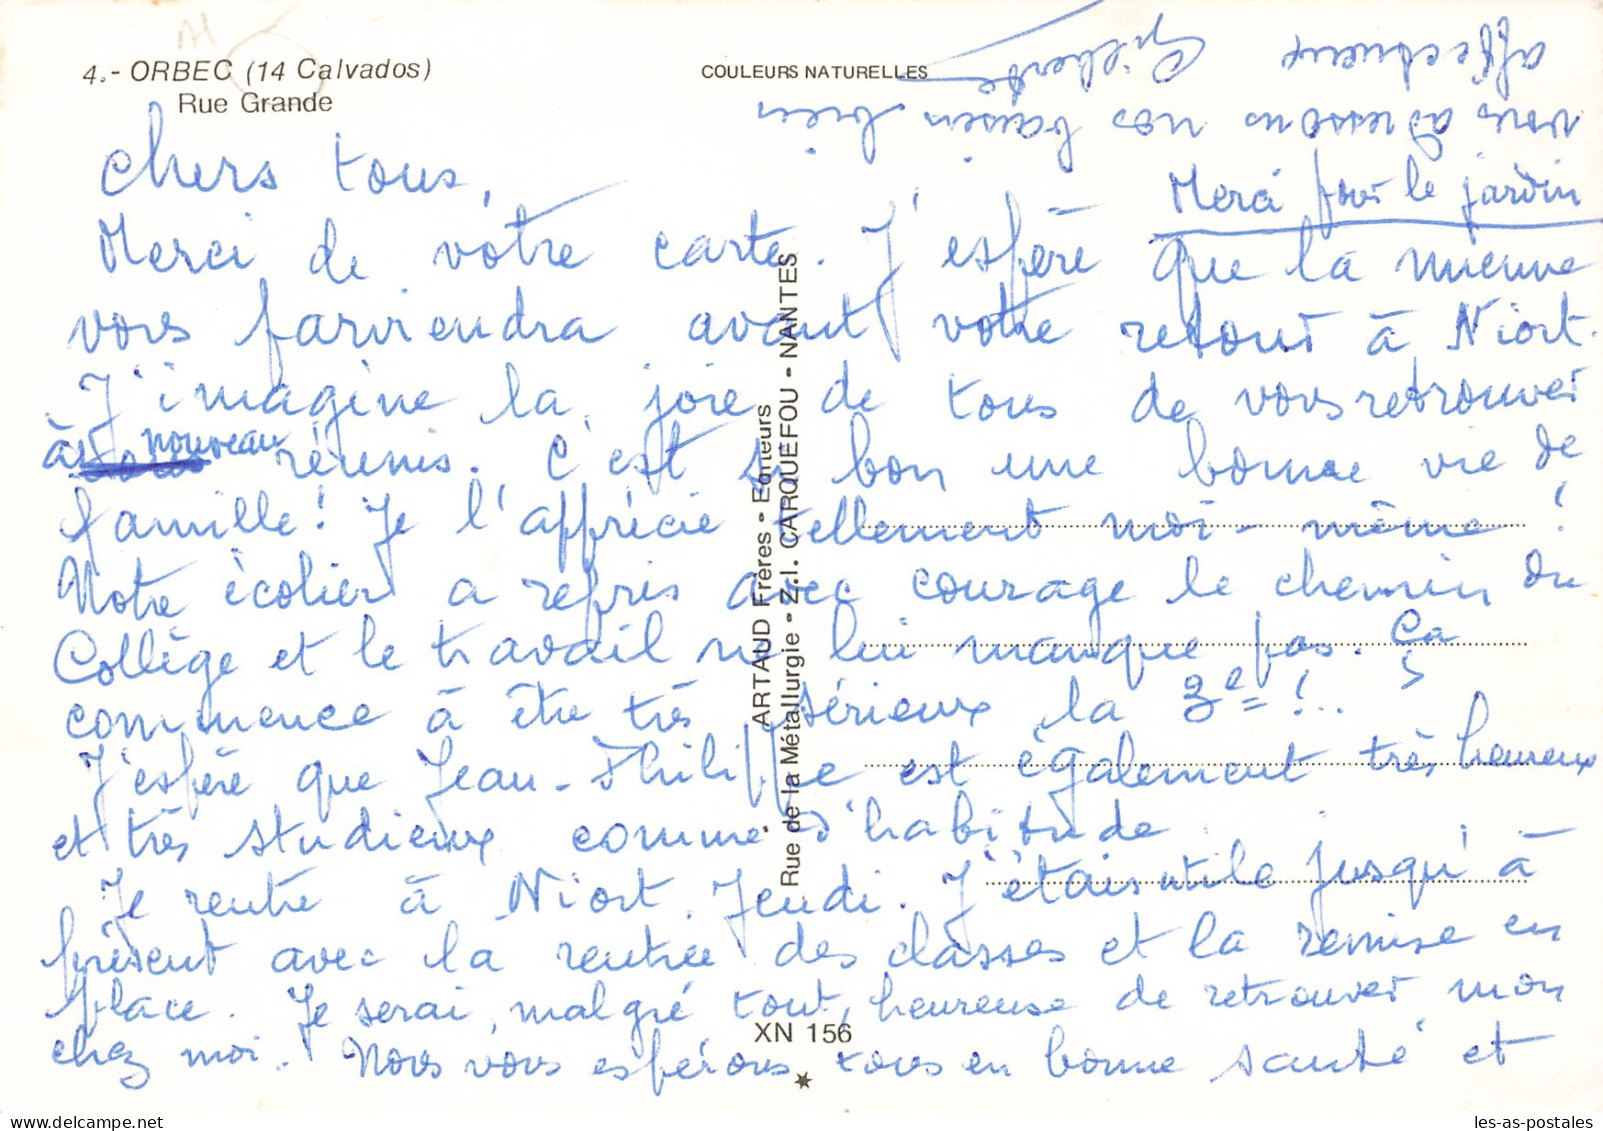 4.- ORBEC (14 Calvados)
Rue Grande
COULEURS NATURELLES
Chers tous,
Merci de votre carte. J'espère que la mienne
vous parviendra avant votre retour à Niort.
J'imagine la joie de tous de vous retrouver
à nouveau réunis. C'est si bon une bonne vie de
famille! Je l'apprécie tellement moi-même!
Notre écolier a repris avec courage le chemin du
Collège et le travail ne lui manque pas. Ça
commence à être très sérieux la 3e!..
J'espère que Jean-Philippe est également très heureux
et très studieux comme d'habitude.
Je rentre à Niort Jeudi. J'étais utile jusqu'à
présent avec la rentrée des classes et la remise en
place. Je serai, malgré tout, heureuse de retrouver mon
chez moi. Nous vous espérons tous en bonne santé et
vous adressons nos baisers bien
affectueux Gilberte
Merci pour le jardin
ARTAUD Frères - Editeurs
Rue de la Métallurgie - Z.I. CARQUEFOU - NANTES
XN 156
les-as-postales